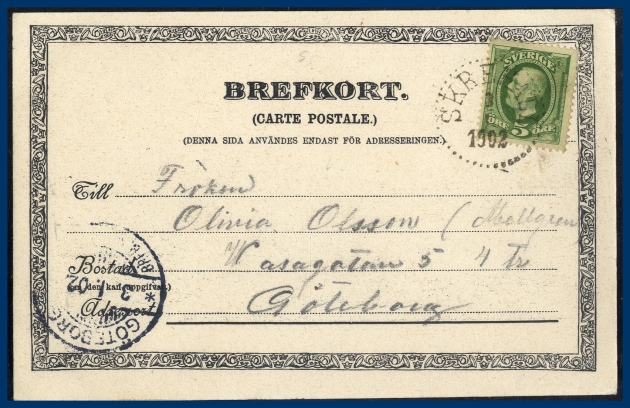 BREFKORT.
(CARTE POSTALE.)
(DENNA SIDA ANVÄNDES ENDAST FÖR ADRESSERINGEN.)
SVERIGE
ÖRE 5 ÖRE
1902
Till Fröken
Olivia Olsson (Mollgren
Bostad Wasagatan 5 4 tr
(om den kan uppgifvas.)
Adressort Göteborg
GÖTEBORG